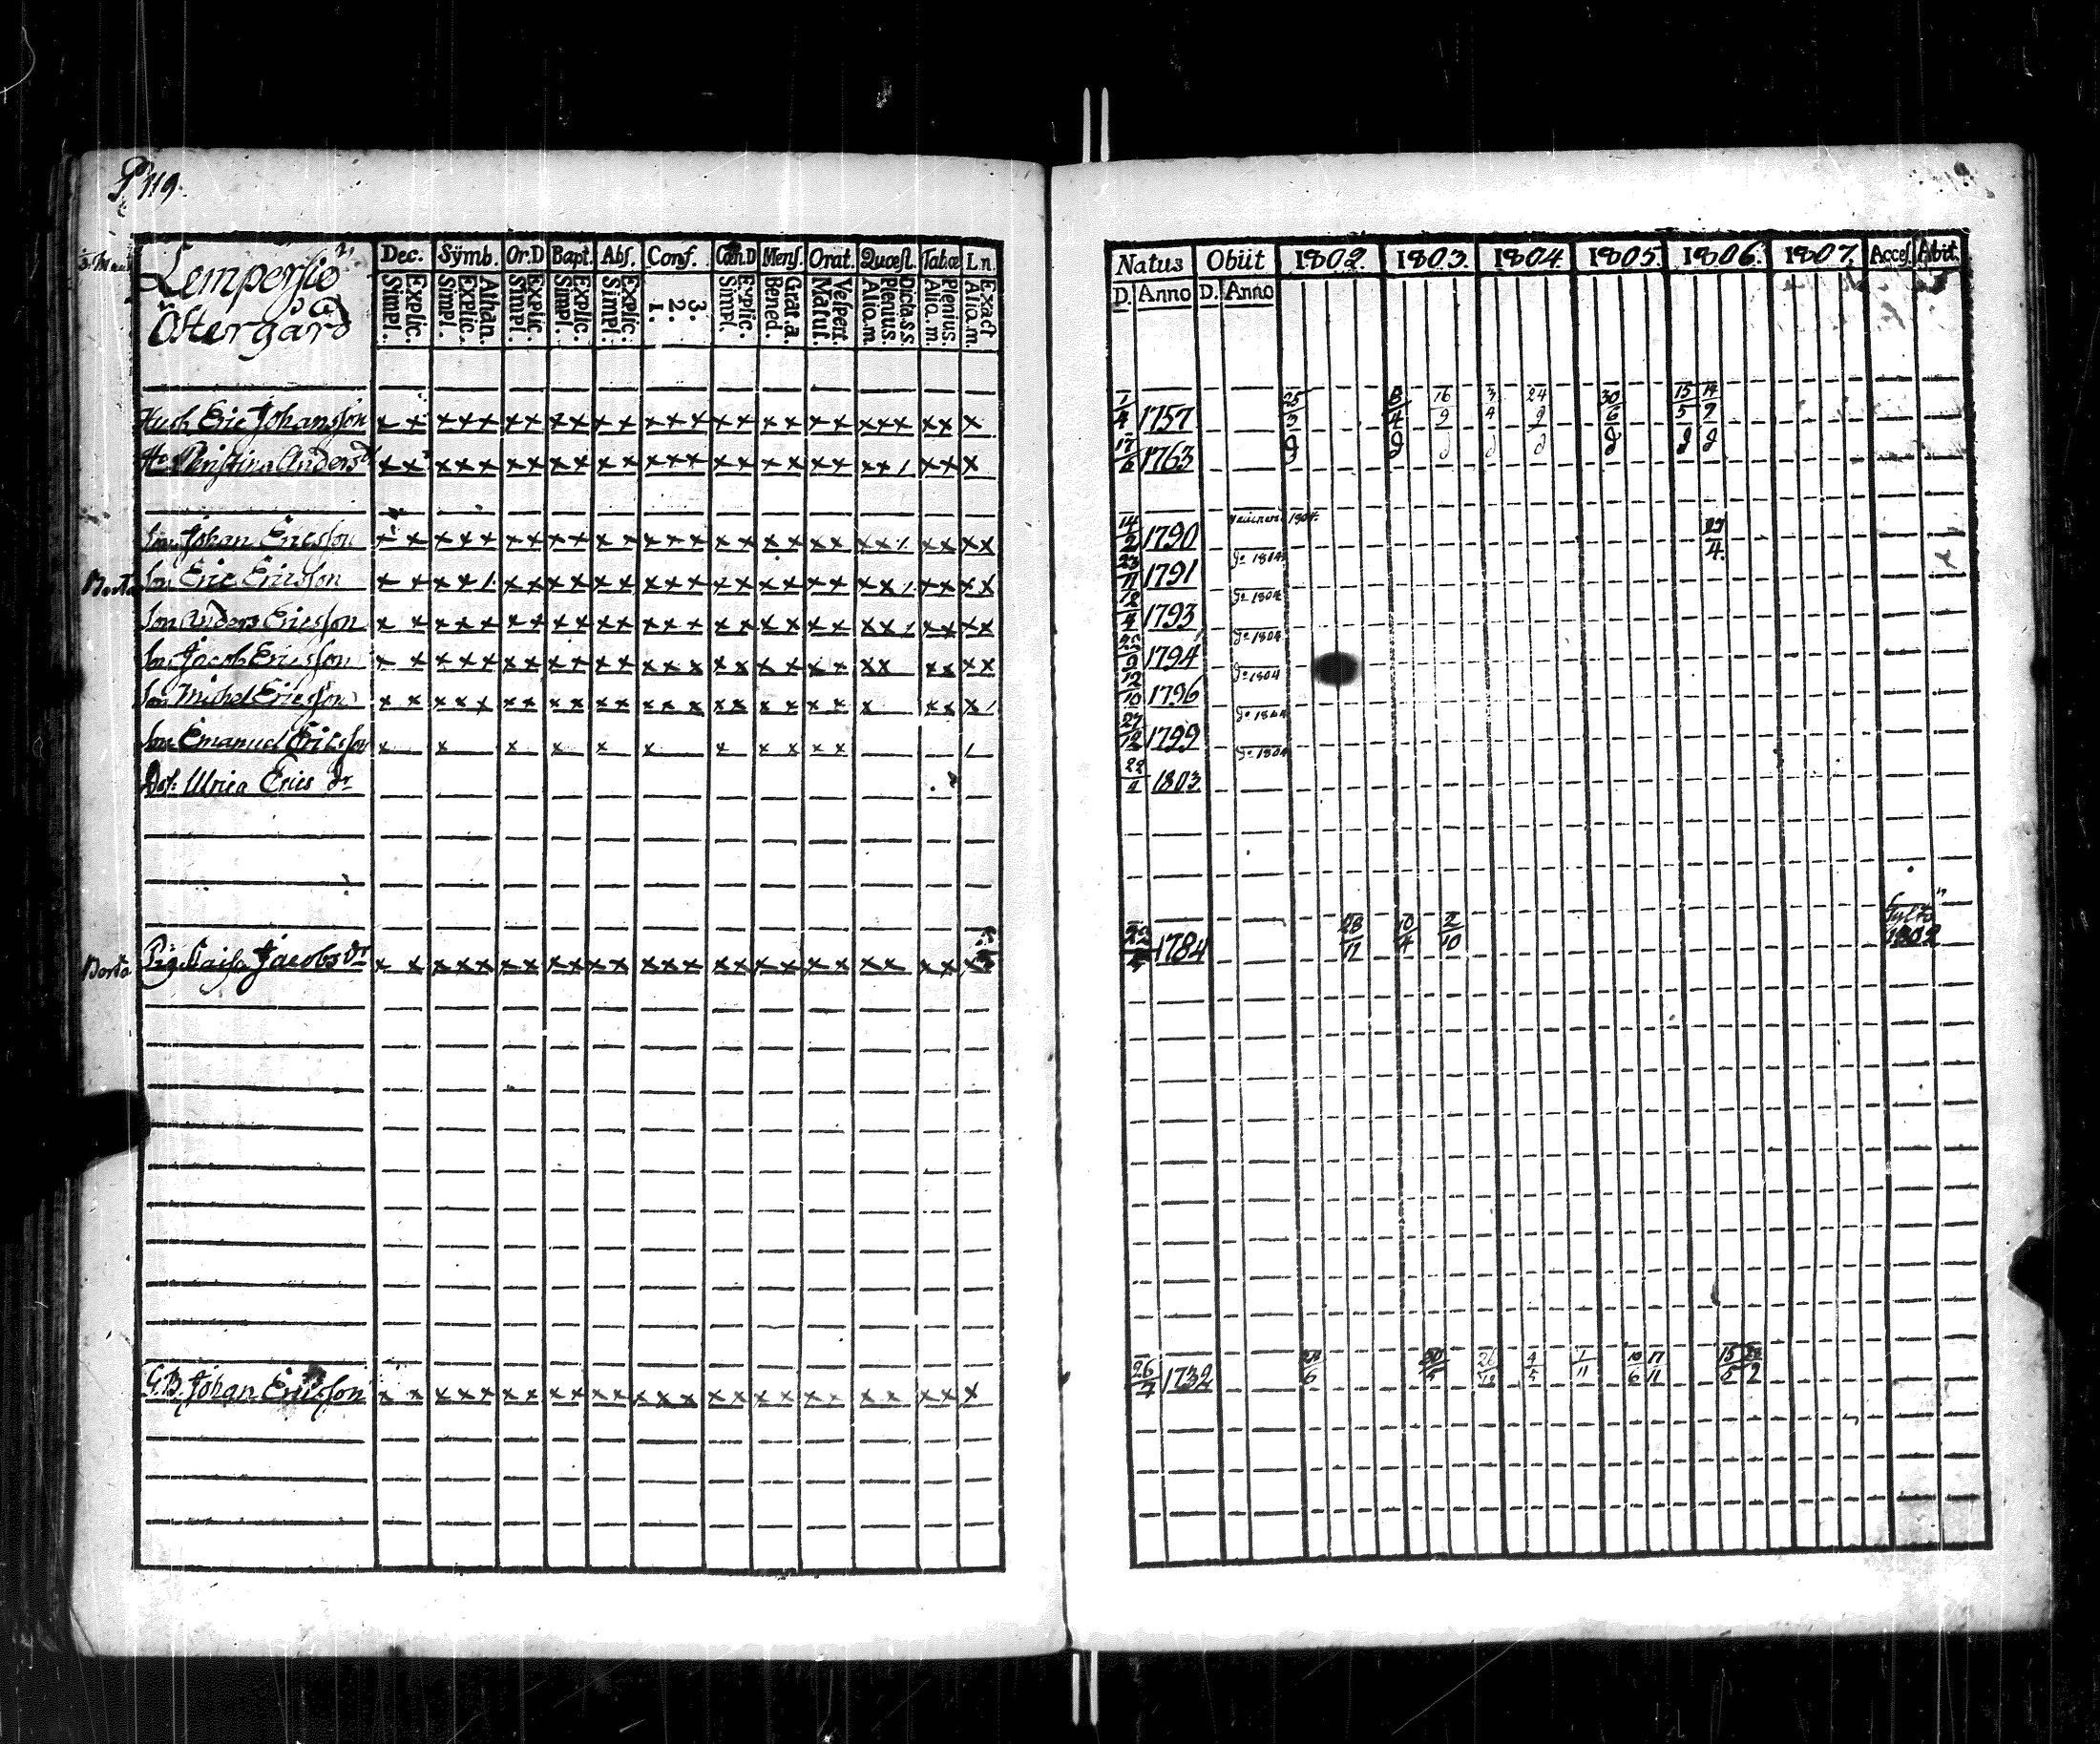 P. 119.
Lempersiö
Östergård
Dec. Sÿmb. Or.D Bapt. Abs. Conf. Cœn.D Mens. Orat. Quæst. Tabæ L n.
Explic. Simpl. Athan. Explic. Simpl. Explic. Simpl. Explic. Simpl. Explic. Simpl. 3. 2. 1. Explic. Simpl. Grat.a. Bened. Vespert. Matut. Dicta.s.s. Plenius. Alio.m. Plenius. Alio.m. Exact Alio.m.
Husb. Eric Johansson x x x x x x x x x x x x x x x x x x x x x x x x x x x
Hu Christina Anders dr x x x x x x x x x x x x x x x x x x x x x x x x x
Son Johan Ericsson x x x x x x x x x x x x x x x x x x x x x x x x x x
Borta Son Eric Ericsson x x x x x x x x x x x x x x x x x x x x x x x x x
Son Anders Ericsson x x x x x x x x x x x x x x x x x x x x x x x x x x
Son Jacob Ericsson x x x x x x x x x x x x x x x x x x x x x x x x x x
Son Michel Ericsson x x x x x x x x x x x x x x x x x x x x x x x x
Son Emanuel Ericsson x x x x x x x x x x x
Dot. Ulrica Erics dr
Borta Pig. Caisa Jacobs dr x x x x x x x x x x x x x x x x x x x x x x x x
G.B. Johan Ericsson x x x x x x x x x x x x x x x x x x x x x x x x x
Natus Obiit 1802. 1803. 1804. 1805. 1806. 1807. Acces. Abiit.
D. Anno D. Anno
1/4 1757 25/3 3/4 16/9 24/9 30/6 15/5
17/6 1763
14/2 1790 Vaccinerad 1804.
23/11 1791 Do 1804
12/4 1793 Do 1804
1794 Do 1804
12/10 1796 Do 1804
27/12 1799 Do 1804
22/11 1803 Do 1804
1784 28/11 10/4 2/10 1802
26/7 1732 26/12 4/5 1/11 10/6 17/11